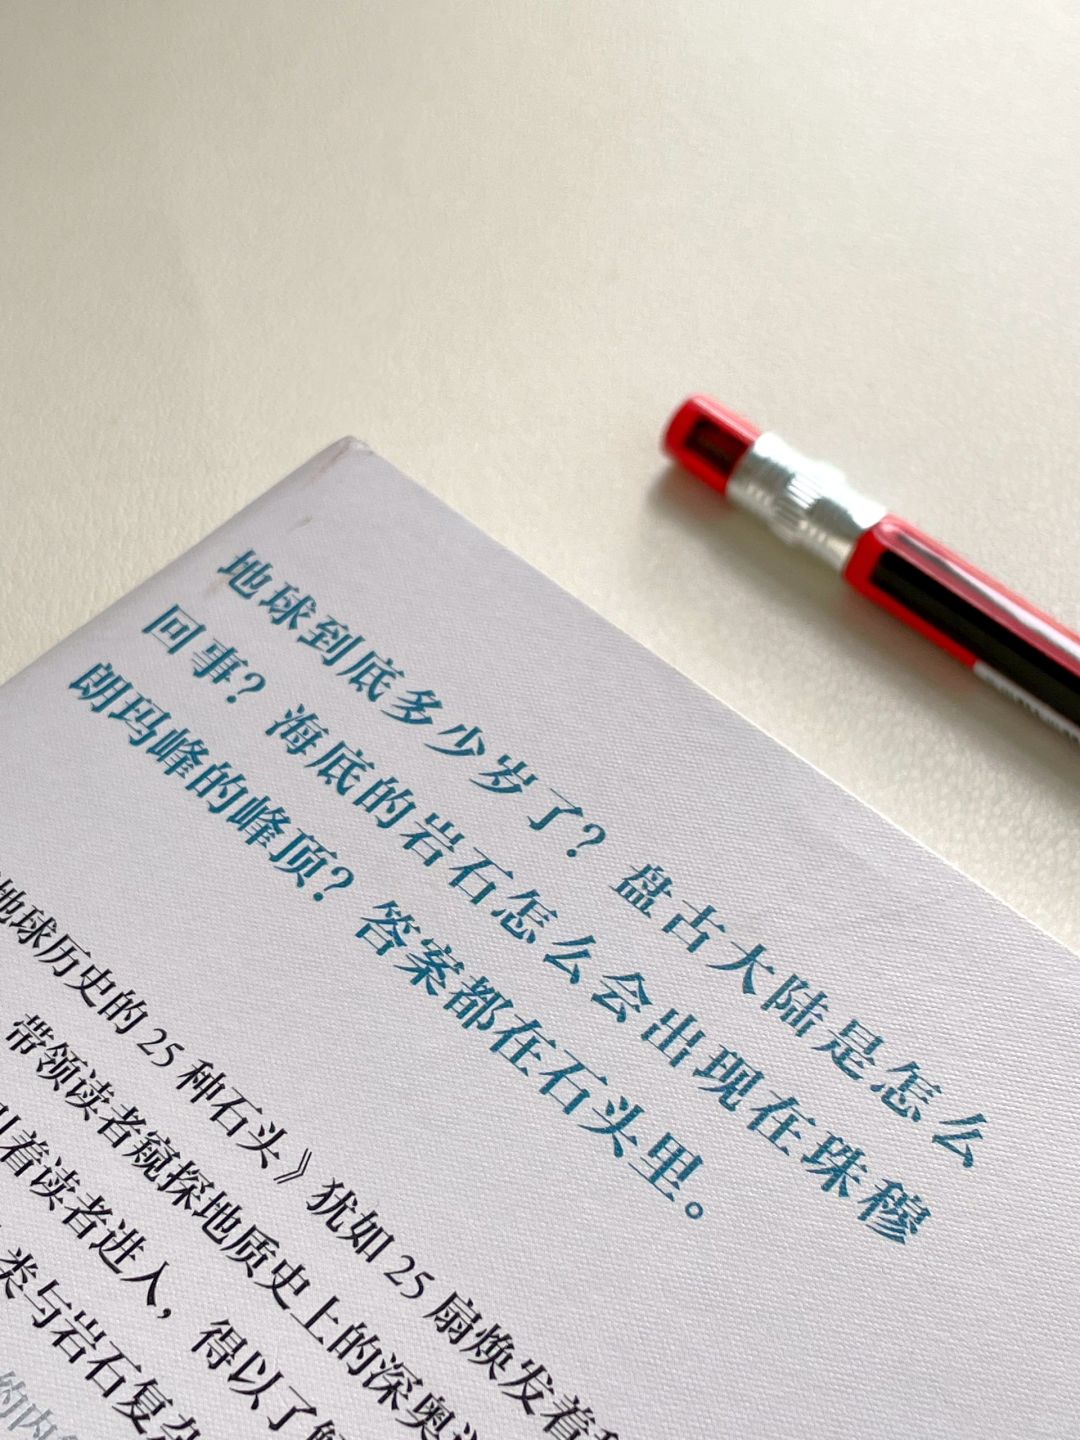 地球到底多少岁了？盘古大陆是怎么
回事？海底的岩石怎么会出现在珠穆
朗玛峰的峰顶？答案都在石头里。
地球历史的 25 种石头》犹如 25 扇焕发着
带领读者窥探地质史上的深奥
引着读者进入，得以了解
类与岩石复杂
的内